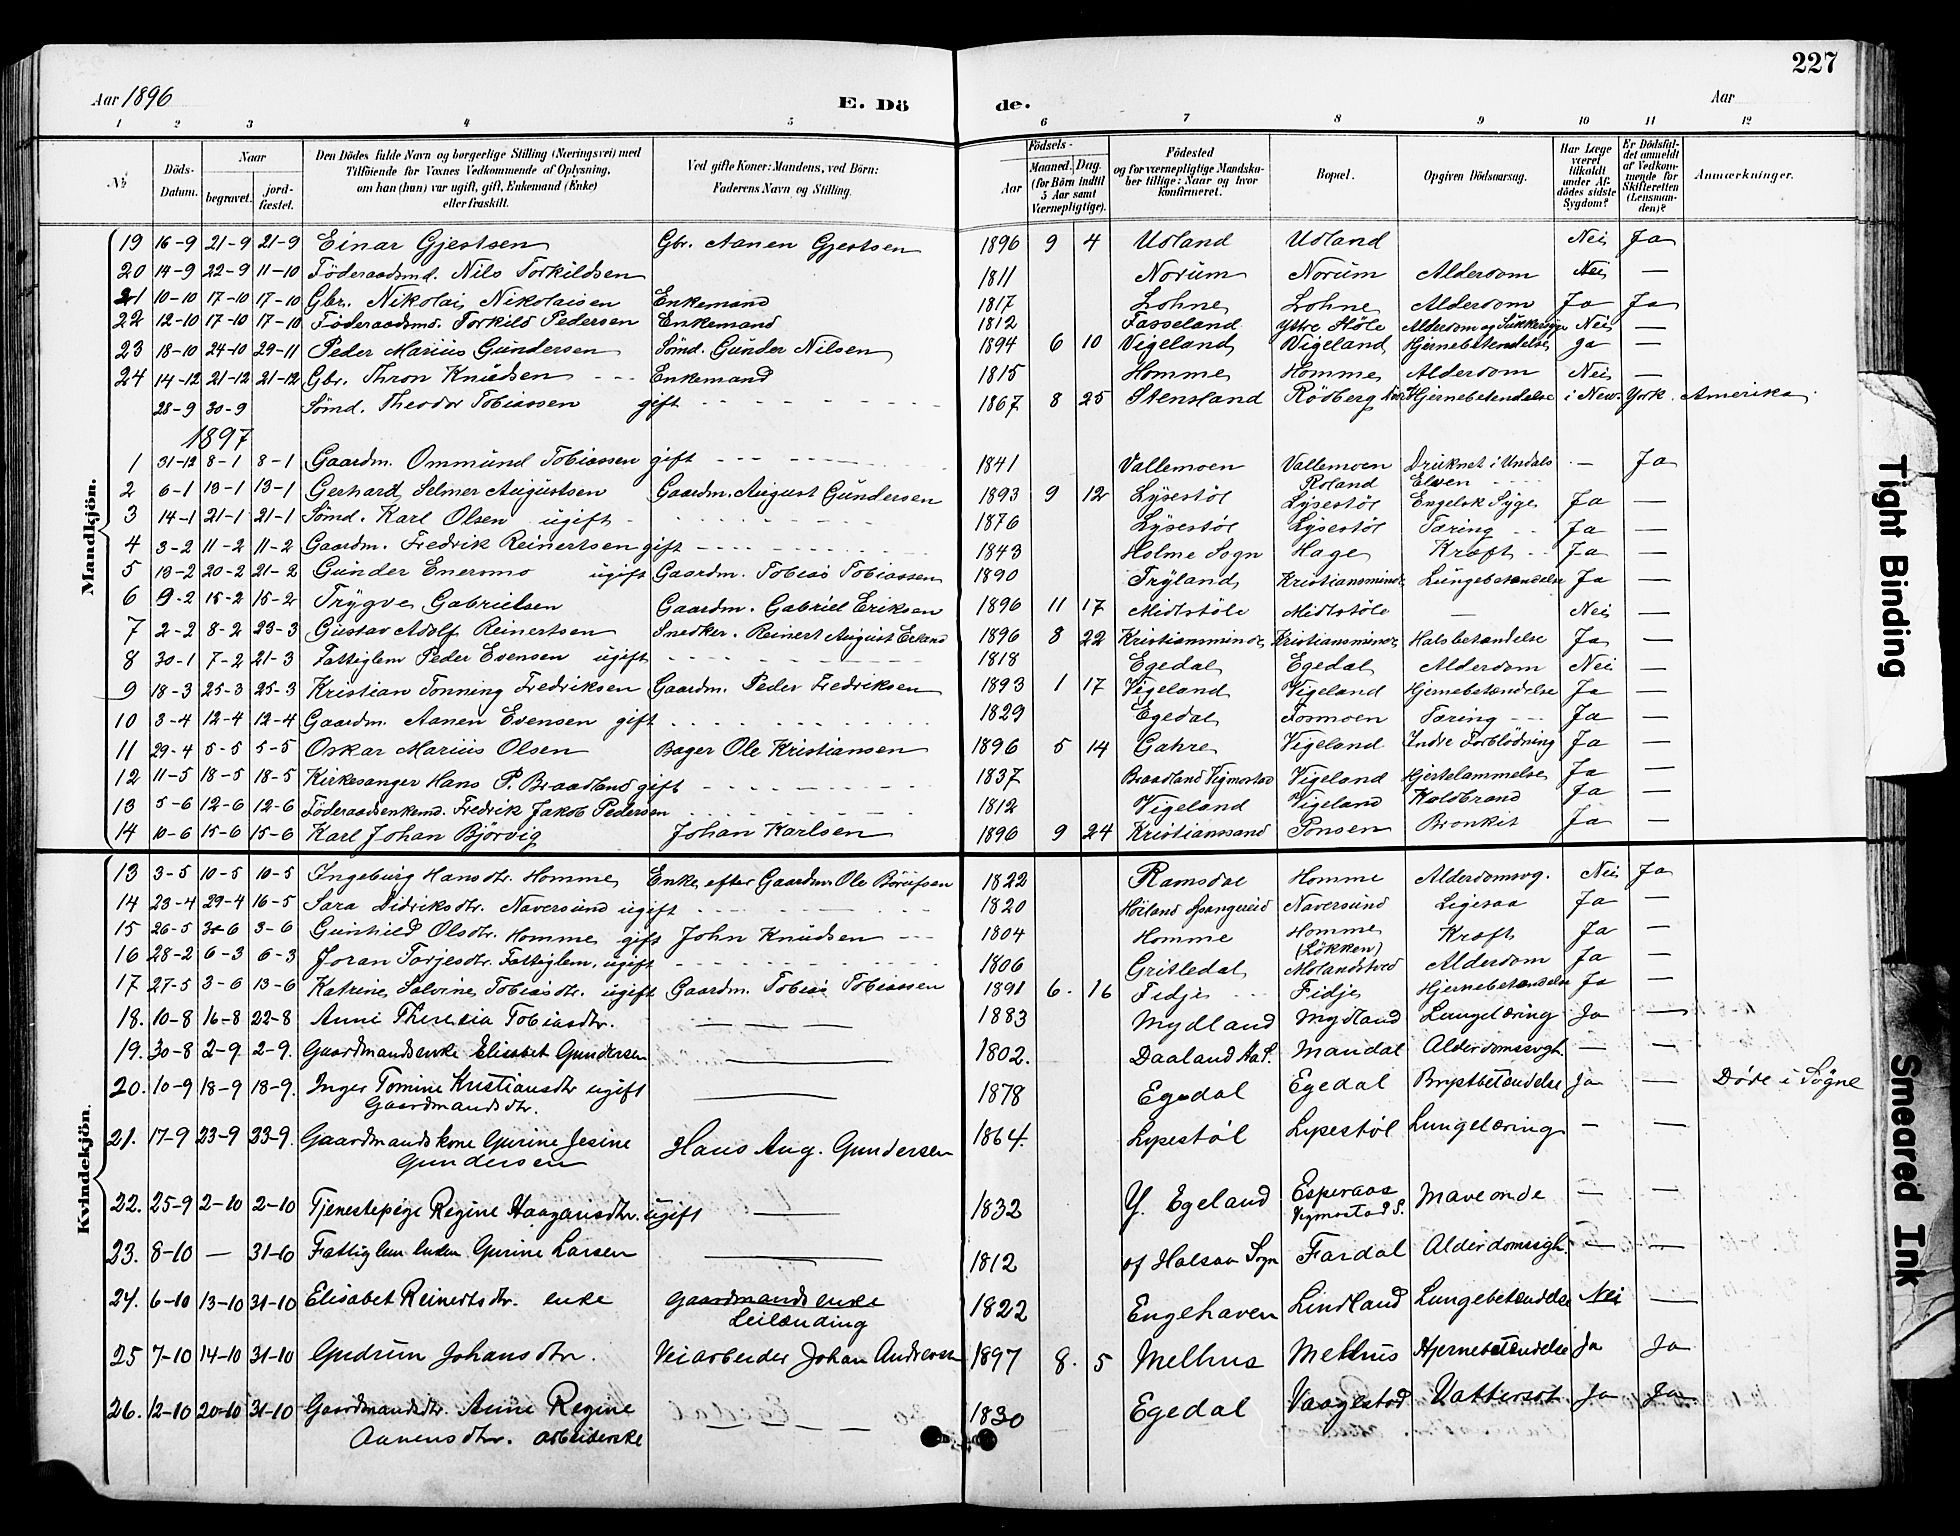 227
Aar 1896 E. Dö de. Aar
1 2 3 4 5 6 7 8 9 10 11 12
No Döds-Datum. Naar begravet. jordfæstet. Den Dödes fulde Navn og borgerlige Stilling (Næringsvei) med Tilföiende for Voxnes Vedkommende af Oplysning, om han (hun) var ugift, gift, Enkemand (Enke) eller fraskilt. Ved gifte Koner: Mandens, ved Börn: Faderens Navn og Stilling. Födsels- Aar Maaned. Dag. (for Börn indtil 5 Aar samt Værnepligtige). Födested og for værnepligtige Mandskaber tillige: Naar og hvor konfirmeret. Bopæl. Opgiven Dödsaarsag. Har Læge været tilkaldt under Afdödes sidste Sygdom? Er Dödsfaldet anmeldt af Vedkommende for Skifteretten (Lensmanden)? Anmærkninger.
Mandkjön.
19 16-9 21-9 21-9 Einar Gjestsen Gbr. Aanen Gjestsen 1896 9 4 Udland Udland Nei Ja
20 14-9 22-9 11-10 Föderaadsmd. Nils Torkildsen 1811 Norum Norum Alderdom Nei —
21 10-10 17-10 17-10 Gbr. Nikolai Nikolaisen Enkemand 1817 Lohne Lohne Alderdom Ja Ja
22 12-10 17-10 17-10 Föderaadsmd. Torkild Pedersen Enkemand 1812 Fasseland Ystre Höle Alderdom og Sukkersyge Nei —
23 18-10 24-10 29-11 Peder Marius Gundersen Sömd. Gunder Nilsen 1894 6 10 Vigeland Vigeland Hjernebetændelse ja —
24 14-12 21-12 21-12 Gbr. Thron Knudsen Enkemand 1815 Homme Homme Alderdom Nei —
28-9 30-9 Sömd. Theodor Tobiassen gift 1867 8 25 Stensland Rödberg Hjernebetændelse i New York Amerika
1897
1 31-12 8-1 8-1 Gaardm. Ommund Tobiassen gift 1841 Vallemoen Vallemoen Druknet i Undals — Ja
2 6-1 13-1 13-1 Gerhard Selmer Augustsen Gaardm. August Gundersen 1893 9 12 Lysestöl Roland Lysestöl Elven Engelsk Syge Ja —
3 14-1 21-1 21-1 Sömd. Karl Olsen ugift 1876 Lysestöl Lysestöl Tæring Ja —
4 3-2 11-2 11-2 Gaardm. Fredrik Reinertsen gift 1843 Holme Sogn Hage Kræft Ja —
5 13-2 20-2 21-2 Gunder Enermo ugift Gaardm. Tobias Tobiassen 1890 Tryland Kristiansminde Lungebetændelse Ja —
6 9-2 15-2 15-2 Trygve Gabrielsen Gaardm. Gabriel Eriksen 1896 11 17 Midtstöle Midtstöle — Nei —
7 2-2 8-2 23-3 Gustav Adolf Reinertsen Snedker. Reinert August 1896 8 22 Kristiansminde Kristiansminde Halsbetændelse Ja —
8 30-1 7-2 21-3 Fattiglem Peder Evensen ugift 1818 Egedal Egedal Alderdom Nei —
9 18-3 25-3 25-3 Kristian Tonning Fredriksen Gaardm. Peder Fredriksen 1893 1 17 Vigeland Vigeland Hjernebetændelse Ja —
10 3-4 12-4 12-4 Gaardm. Aanen Evensen gift 1829 Egedal Formoen Tæring Ja —
11 29-4 5-5 5-5 Oskar Marius Olsen Bager Ole Kristiansen 1896 5 14 Gahre Vigeland Indre Forblödning Ja —
12 11-5 18-5 18-5 Kirkesanger Hans P. Braadland gift 1837 Braadland Vigmostad Vigeland Hjertelammelse Ja —
13 5-6 12-6 12-6 Föderaadsenkemd. Fredrik Jakob Pedersen 1812 Vigeland Vigeland Koldbrand Ja —
14 10-6 15-6 15-6 Karl Johan Björvig Johan Karlsen 1896 9 24 Kristianssand Ponsen Bronkit Ja —
Kvindekjön.
13 3-5 10-5 10-5 Ingeborg Hansdtr. Homme Enke efter Gaardm. Ole 1822 Ramsdal Homme Alderdomssvg. Nei Ja
14 23-4 29-4 16-5 Sara Didriksdtr. Naversund ugift 1820 Höiland Spangereid Naversund Ligesaa Ja —
15 26-5 3-6 3-6 Gunhild Olsdtr. Homme gift John Knudsen 1804 Homme Homme (Lökken) Kræft Ja —
16 28-2 6-3 6-3 Joran Torjesdtr. Fattiglem, ugift 1806 Gritledal Molandsved Alderdom Ja —
17 27-5 3-6 13-6 Katrine Salvine Tobiasdtr. ugift Gaardm. Tobias Tobiassen 1891 6. 16 Fidje Fidje Hjernebetændelse Ja —
18. 10-8 16-8 22-8 Anne Theresia Tobiasdtr. — — — 1883 Mydland Mydland Lungetæring Ja —
19. 30-8 2-9 2-9. Gaardmandsenke Elisabet Gundersen — 1802. Daaland Ha S. Mandal Alderdomssvgh. — —
20. 10-9 18-9 18-9. Inger Tomine Kristiansdtr ugift — 1878 Egedal Egedal Brystbetændelse Ja — Døde i Søgne
Gaardmandsdtr.
21. 17-9 23-9 23-9. Gaardmandskone Gurine Jesine Hans Aug. Gundersen 1864. Lysestøl Lysestøl Lungetæring — —
Gundersen
22. 25-9 2-10 2-10 Tjenestepige Regine Haagansdtr. ugift — 1832 Y. Egeland Esperaas Mave onde — —
Vigmostad S.
23. 8-10 — 31-10 Fattiglem enken Gurine Larsen — 1812 af Halsaa Sogn Fardal Alderdomssvgh. — —
24. 6-10 13-10 31-10 Elisabet Reinertsdtr. enke Gaardmands enke 1822 Engehaven Lindland Lungebetændelse Nei —
Leilænding
25 7-10 14-10 31-10 Gudrun Johansdtr. Veiarbeider Johan Andresen 1897 8. 5 Melhus Melhus Hjernebetændelse Ja Ja
26. 12-10 20-10 31-10 Gaardmandsdtr. Anne Regine — — 1830 Egedal Vaagestad Vattersot. Ja Ja
Aanensdtr. arbeiderske
Tight Binding
Smeared Ink